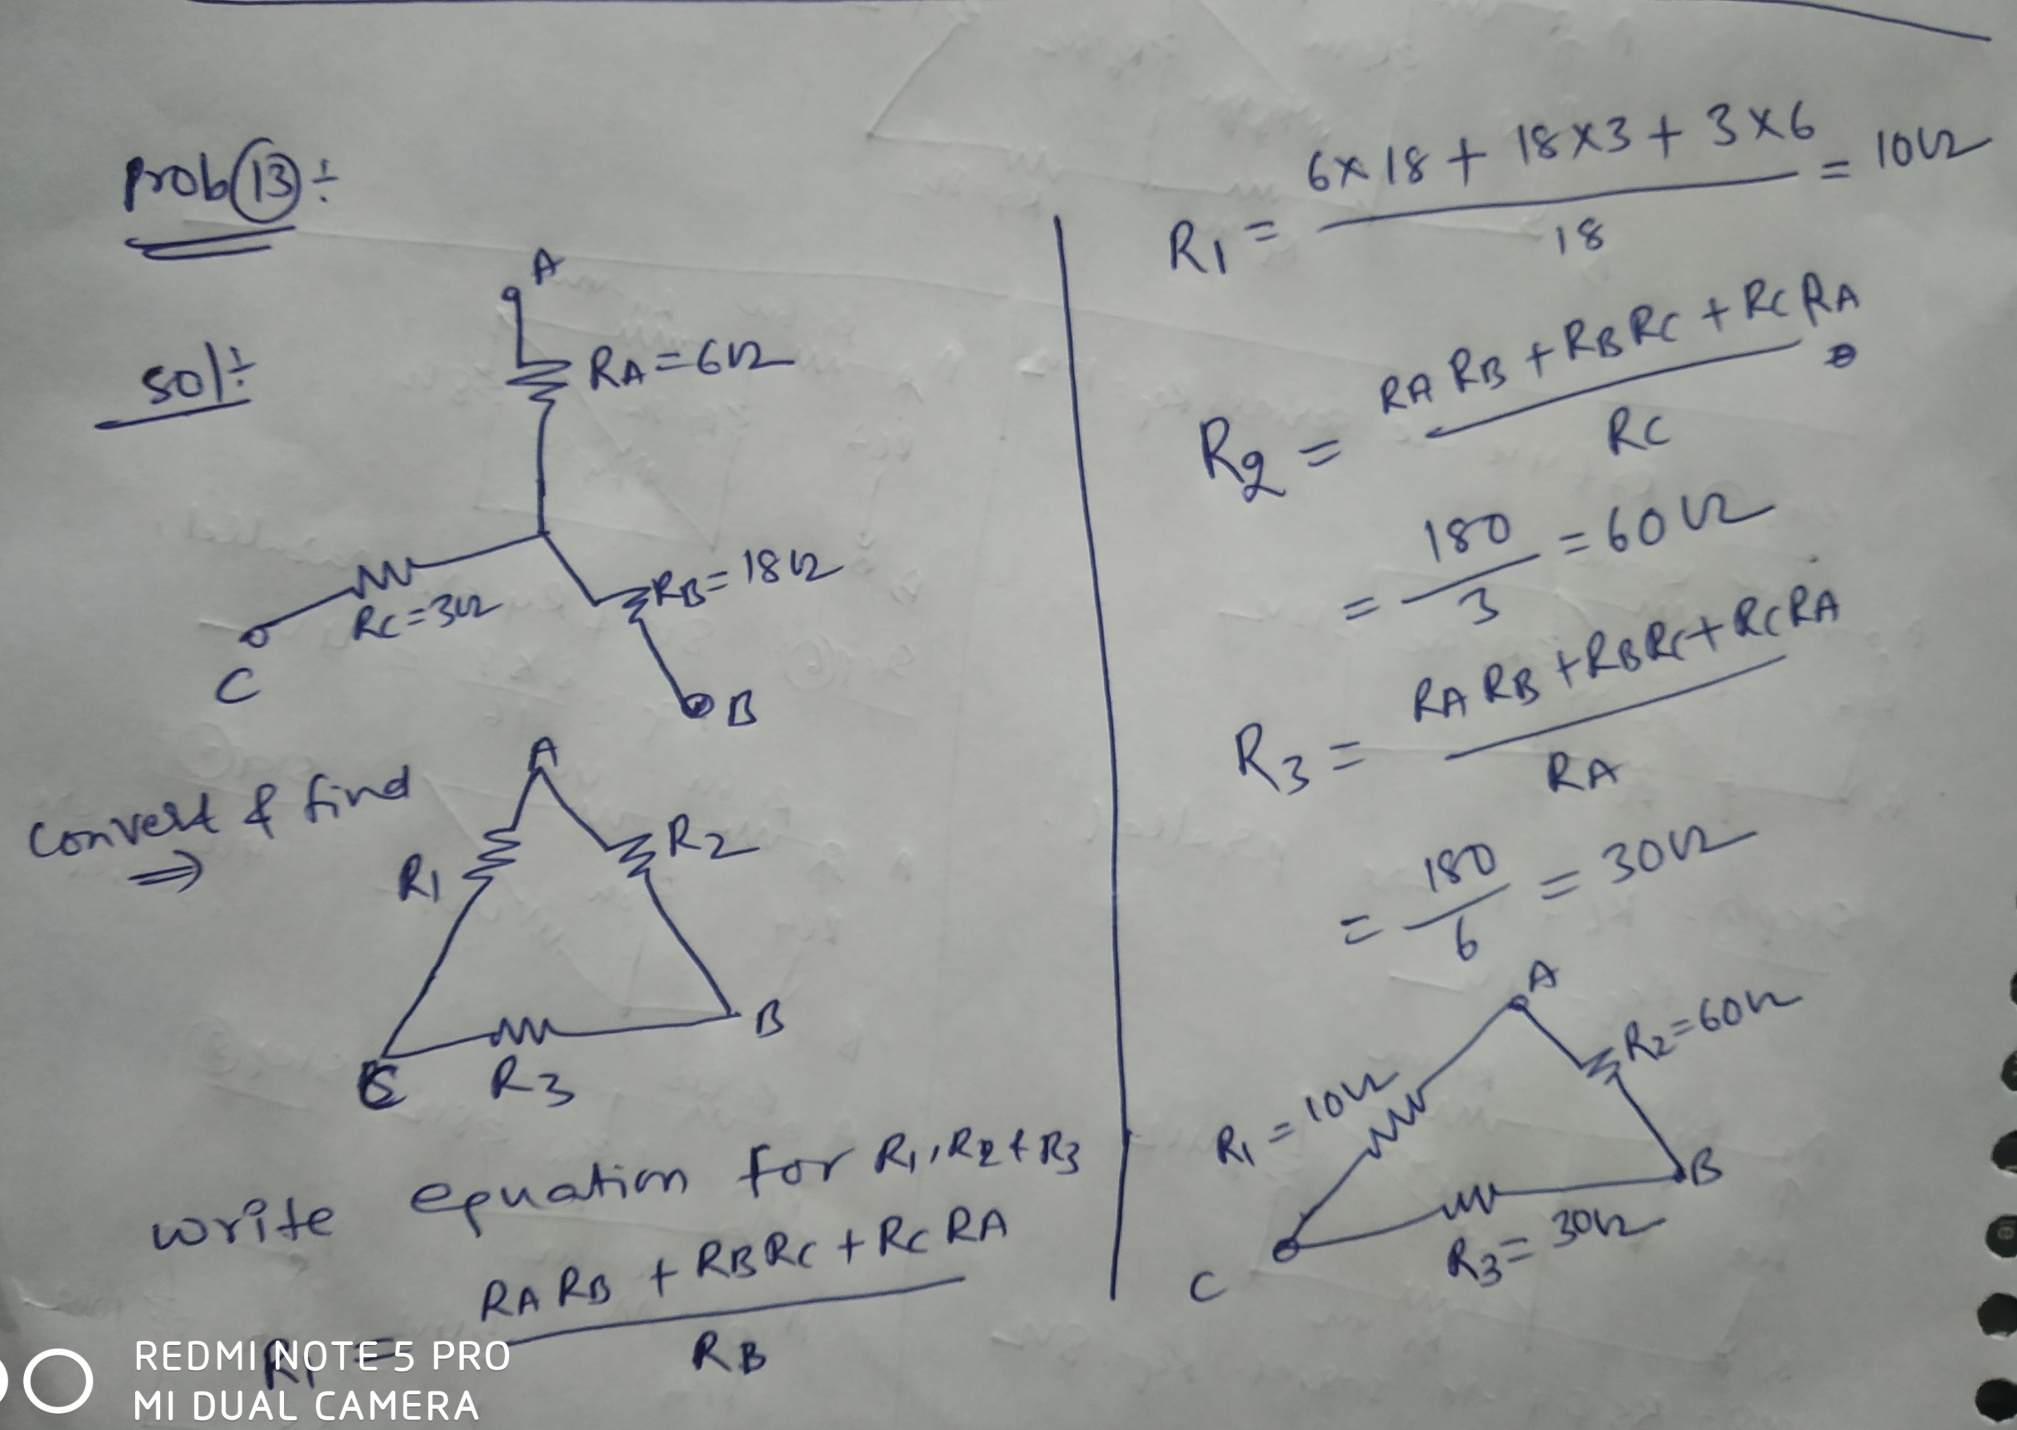 Prob 13 ÷
Sol ÷
A
RA = 6Ω
RB = 18Ω
RC = 3Ω
C
B
Convert & find
⇒
A
R1
R2
B
C
R3
write equation for R1, R2 & R3
R1 = (RA RB + RB RC + RC RA) / RB
R1 = (6 × 18 + 18 × 3 + 3 × 6) / 18 = 10Ω
R2 = (RA RB + RB RC + RC RA) / RC
= 180 / 3 = 60Ω
R3 = (RA RB + RB RC + RC RA) / RA
= 180 / 6 = 30Ω
A
R2 = 60Ω
R1 = 10Ω
B
R3 = 30Ω
C
REDMI NOTE 5 PRO
MI DUAL CAMERA